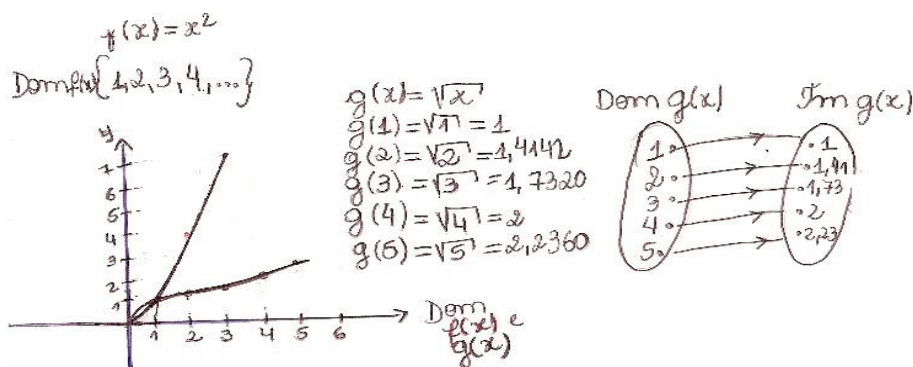 f(x) = x²
Dom f(x) {1, 2, 3, 4, ...}
y
7
6
5
4
3
2
1
1 2 3 4 5 6
Dom
f(x) e
g(x)
g(x) = √x
g(1) = √1 = 1
g(2) = √2 = 1,4142
g(3) = √3 = 1,7320
g(4) = √4 = 2
g(5) = √5 = 2,2360
Dom g(x) Im g(x)
1 .1
2. .1,41
3. .1,73
4. .2
5. .2,23